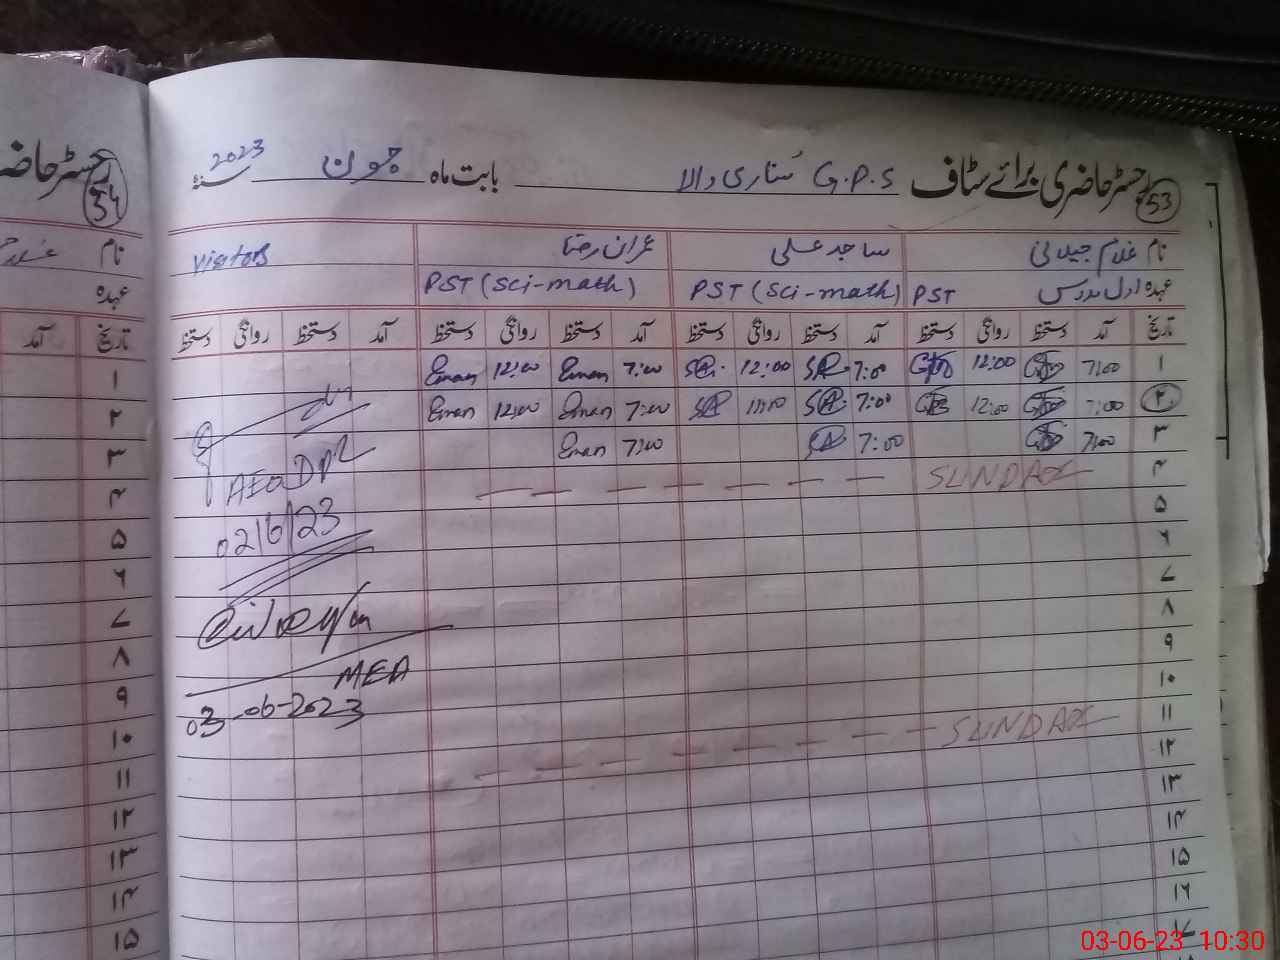 رجسٹر حاضری برائے سٹاف G.P.S ستاری والا بابت ماہ جون سنہ 2023
53
نام غلام جیلانی ساجد علی عمران رضا Visitors
عہدہ اول مدرس PST PST (Sci-math) PST (Sci-math)
تاریخ آمد دستخط روانگی دستخط آمد دستخط روانگی دستخط آمد دستخط روانگی دستخط آمد دستخط روانگی دستخط
۱ 7:00 12:00 7:00 12:00 7:00 Eman 12:00 Eman
۲ 7:00 12:00 7:00 7:00 Eman 12:00 Eman
۳ 7:00 7:00 7:00 Eman
۴ SUNDAY
۵
۶
۷
۸
۹
۱۰
۱۱ SUNDAY
۱۲
۱۳
۱۴
۱۵
۱۶
۱۷
AEO
02/6/23
MEA
03-06-2023
رجسٹر حاضری
54
نام
عہدہ
تاریخ آمد
۱
۲
۳
۴
۵
۶
۷
۸
۹
۱۰
۱۱
۱۲
۱۳
۱۴
۱۵
03-06-23 10:30